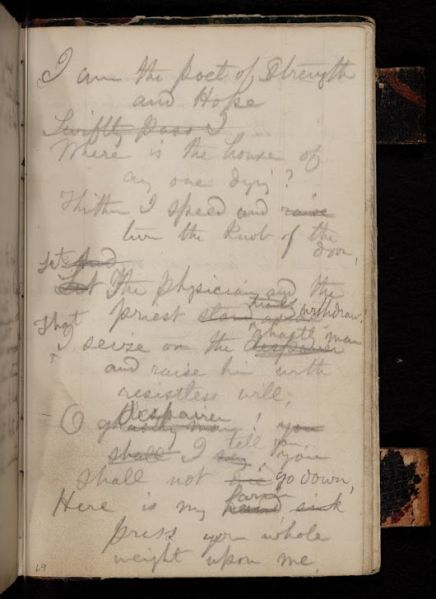 I am the poet of Strength
and Hope
Swiftly pass I
Where is the house of
any one dying?
Thither I speed and raise
turn the knob of the
door,
Let And
Let the physician and the
priest stand aside timidly withdraw,
That
I seize on the despairer ghastly man
and raise him with
resistless will;
O ghastly man despairer! you
shall I say tell you, you
shall not die go down,
Here is my hand arm sink
press your whole
weight upon me,
69